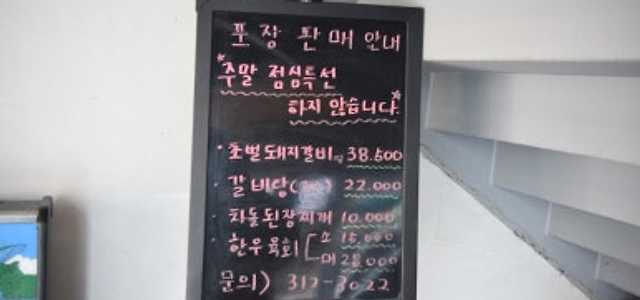 포장 판매 안내
*주말 점심특선
하지 않습니다*
· 초벌돼지갈비 38.500
· 갈비탕 22.000
· 차돌된장찌개 10.000
· 한우육회 [ 소 15,000
대 28,000
문의) 312-3022